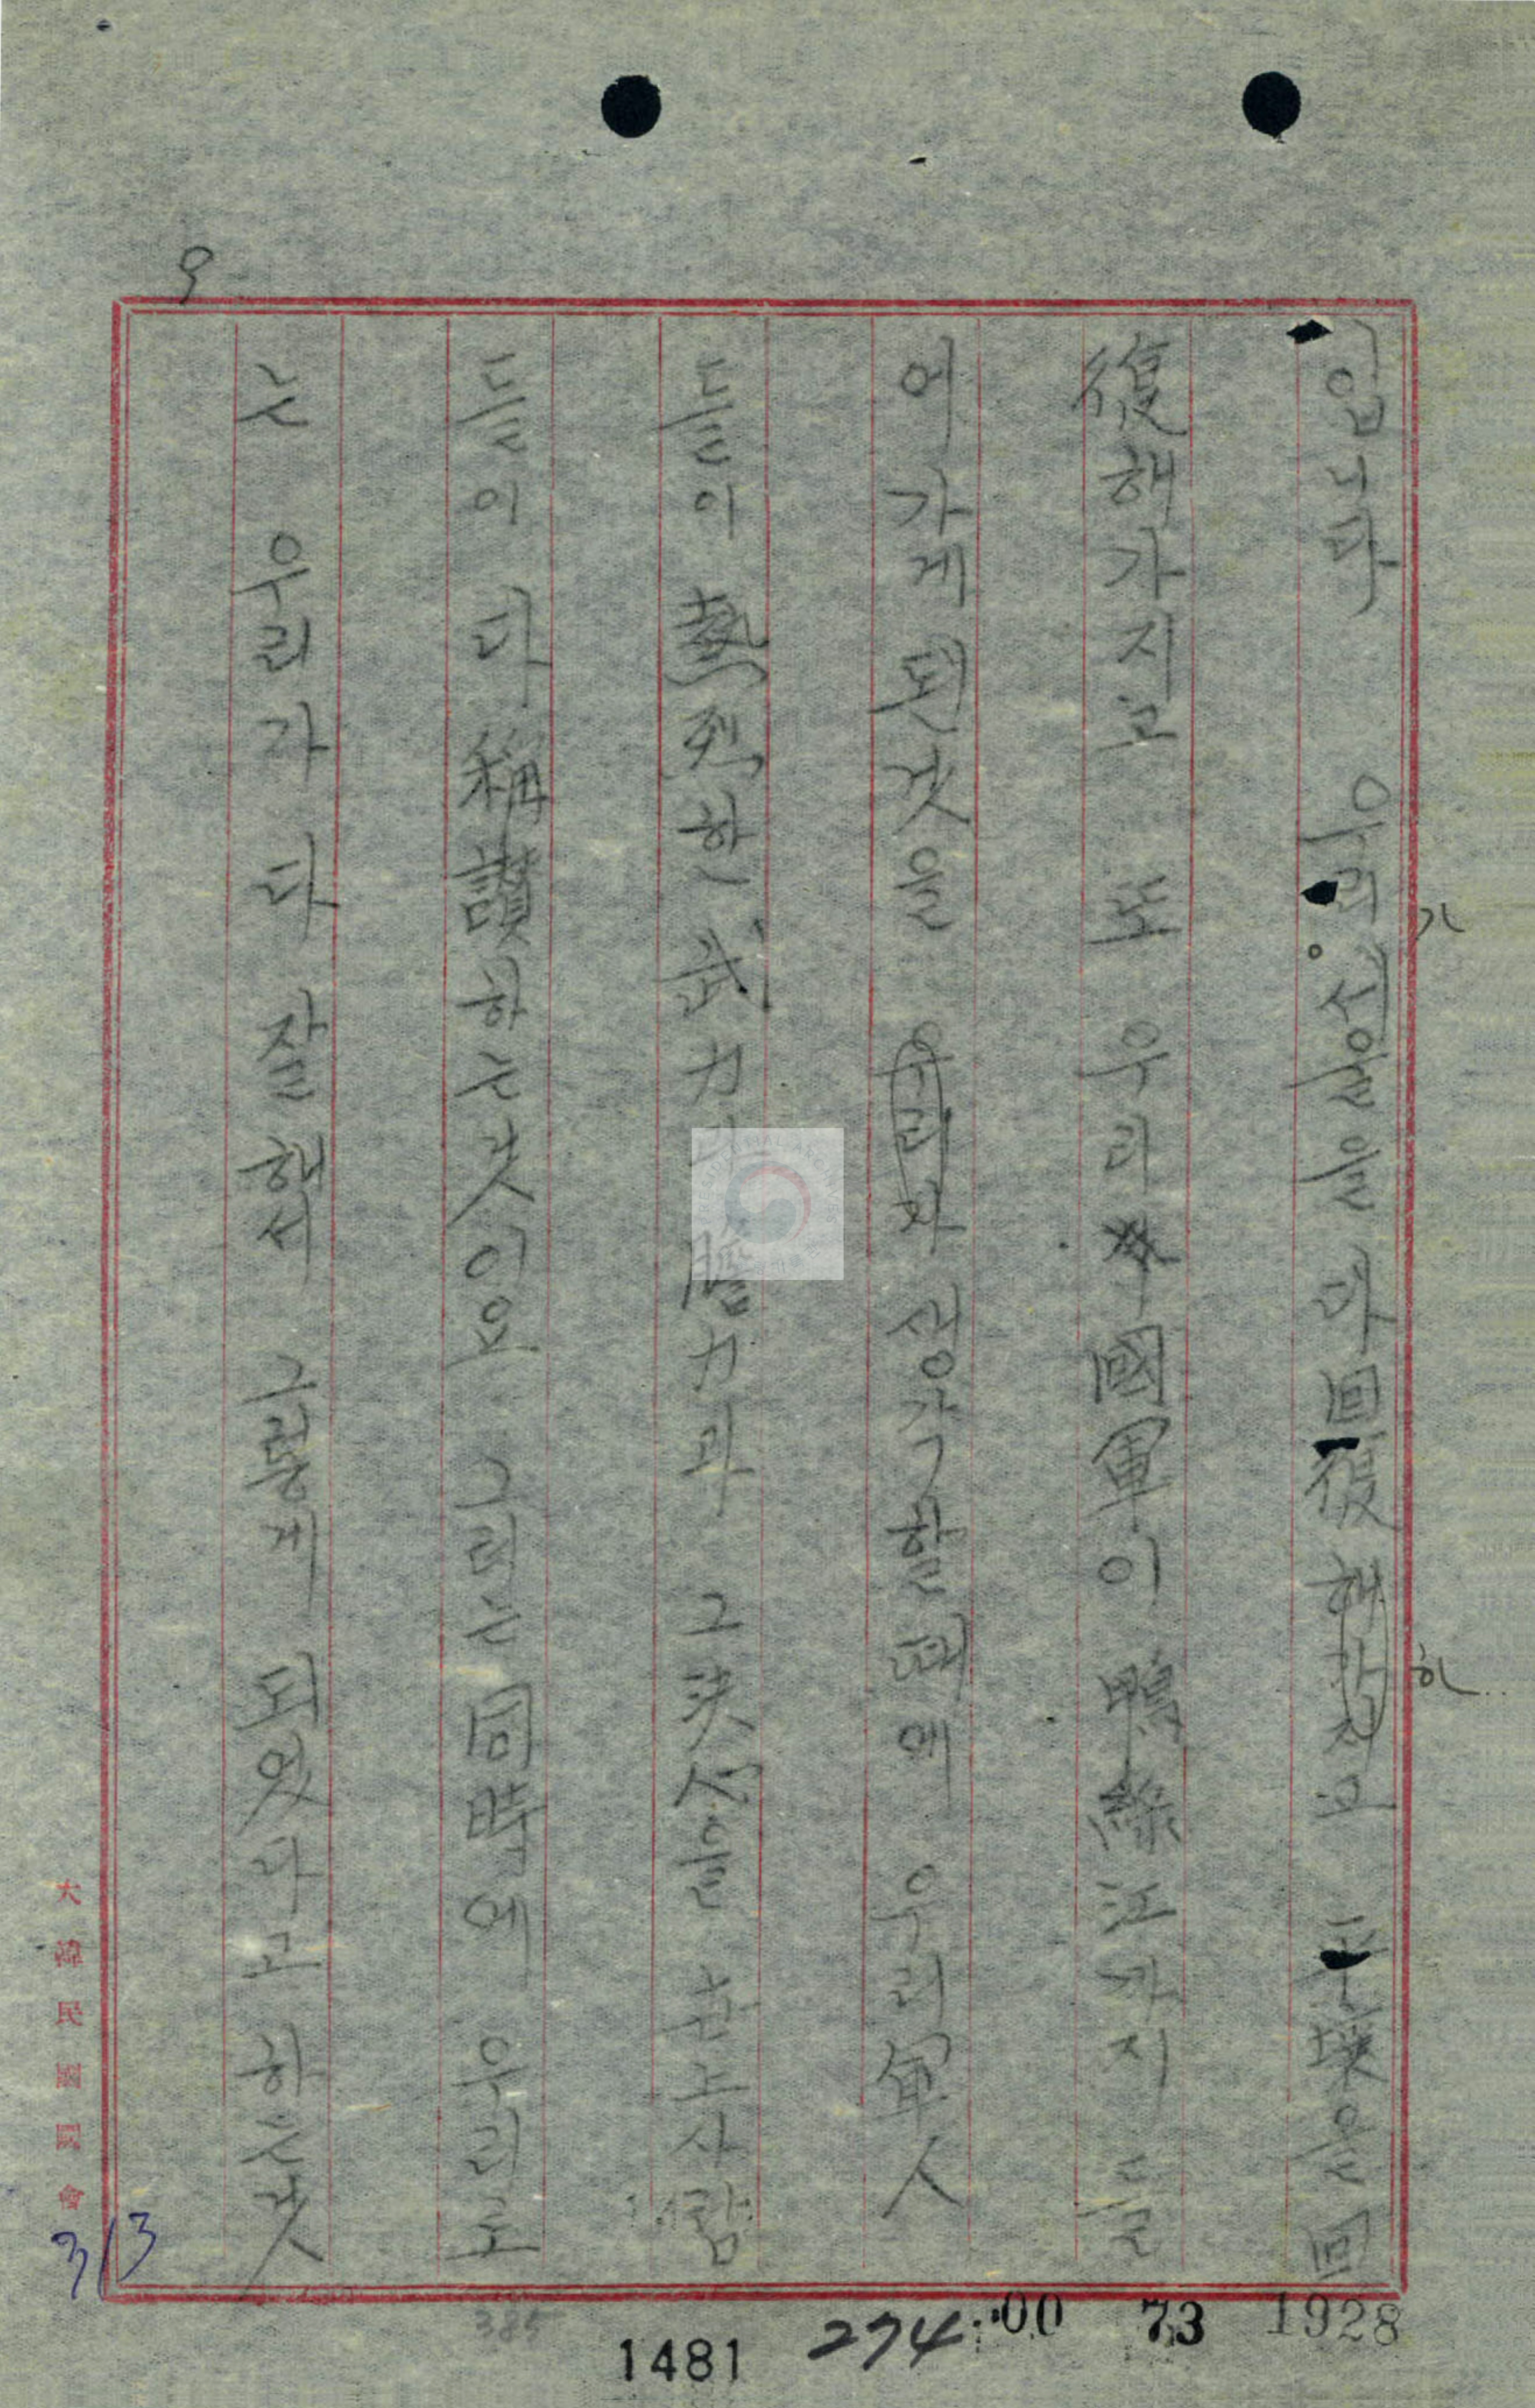 입니다 우리 서울을 다 回復해가지고 平壤을 回
가
하
復해가지고 또 우리 國軍이 鴨綠江까지 들
어가게 된것을 우리가 생각할때에 우리 軍人
들이 熱烈한 武力과 膽力과 그 决心을 안는사람
들이 다 稱讚하는것이요 그러는 同時에 우리도
는 우리가 다 잘해서 그렇게 되였다고 하는것
9
大韓民國國會
313
385
1481
274
00 73 1928